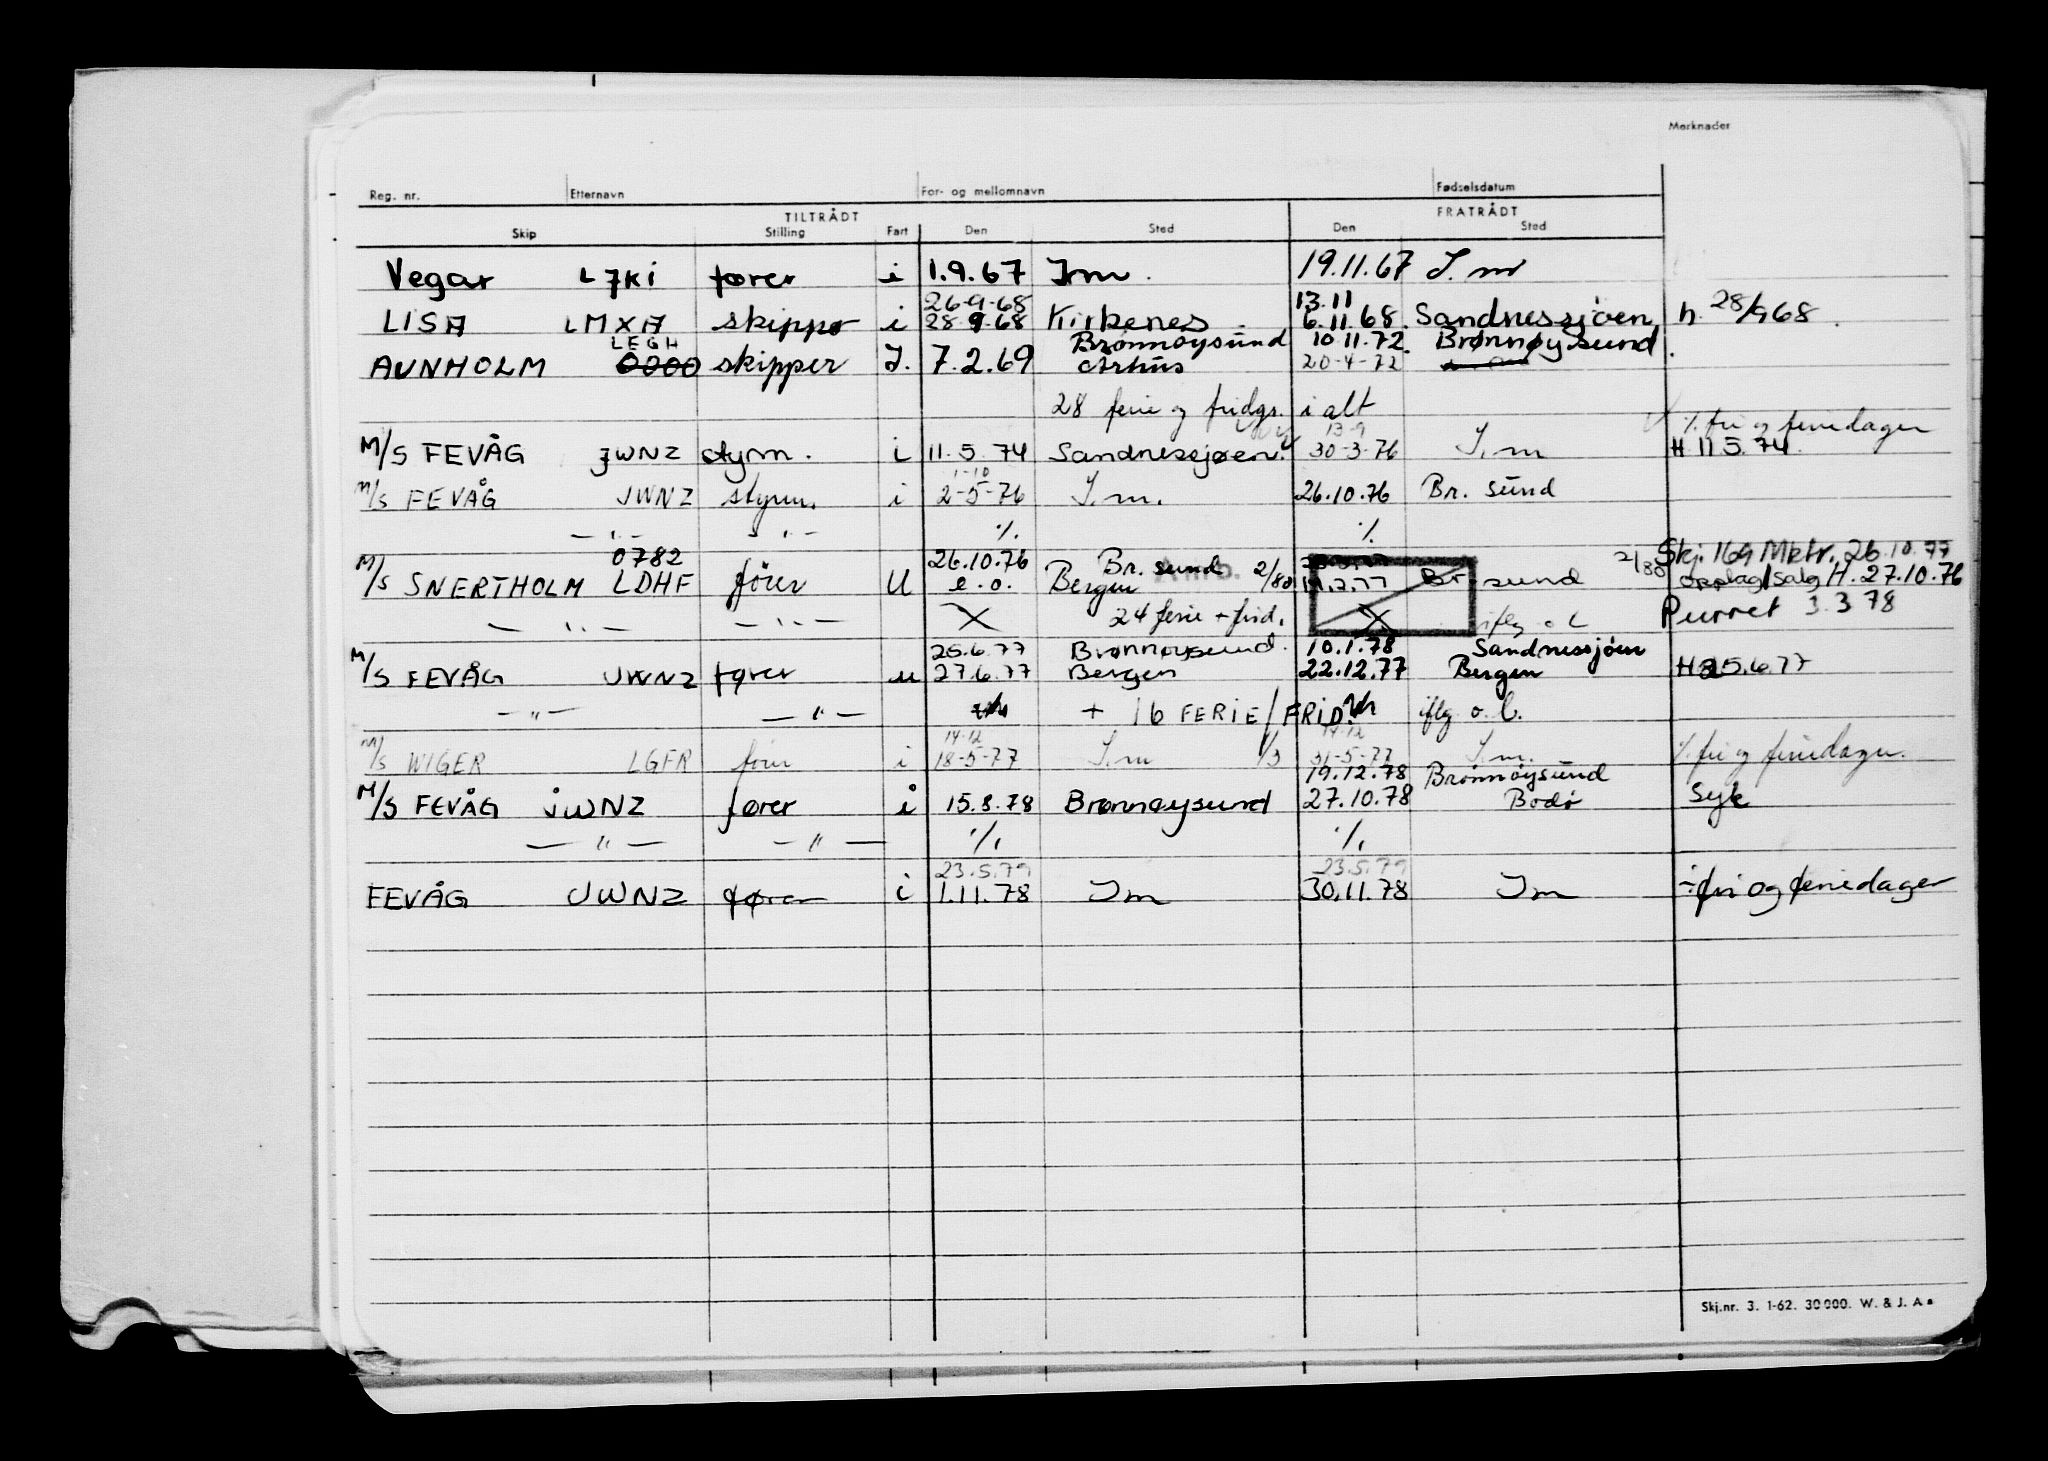 Merknader
Reg. nr. Etternavn For- og mellomnavn Fødselsdatum
TILTRÅDT FRATRÅDT
Skip Stilling Fart Den Sted Den Sted
Vegar LJKI fører i 1.9.67 Im. 19.11.67 I.m
26-9-68 13.11
LISA LMXA skipper i 28.9.68 Kirkenes. 6.11.68. Sandnessjøen h. 28/9 68.
LEGH Brønnøysund 10.11.72. Brønnøysund.
AUNHOLM skipper I. 7.2.69 Århus 20-4-72
28 ferie og fridgr. i alt
13-9 % fri og feriedager
M/S FEVÅG JWNZ styrm. i 11.5.74 Sandnessjøen. 30-3-76 I.m H 11.5.74.
1-10
M/S FEVÅG JWNZ styrm. i 2-5-76 I.m. 26.10.76 Br. sund
— " — " — % %
0782 26.10.76 Br. sund 2/80 Skj. 169 Mktr. 26.10.77
M/S SNERTHOLM LDHF fører U e.o. Bergen 2/80 19.2.77 Br sund opplag/salg H. 27.10.76
— " — — " — 24 ferie + frid. iflg o.l. Purret 3.3 78
25.6.77 Brønnøysund. 10.1.78 Sandnessjøen
M/S FEVÅG JWNZ fører u 27.6.77 Bergen 22.12.77 Bergen H 25.6.77
— " — — " — + 16 FERIE/FRID. iflg o.l.
14-12 14-12
M/S WIGER LGFR fører i 18-5-77 I.m 1/3 31-5-77 I.m. % fri og feriedager.
19.12.78 Brønnøysund
M/S FEVÅG JWNZ fører i 15.8.78 Brønnøysund 27.10.78 Bodø Syk
— " — — " — % %
23.5.79 23.5.79
FEVÅG JWNZ fører i 1.11.78 Im 30.11.78 Im ÷ fri og feriedager
Skj.nr. 3. 1-62. 30 000. W. & J. A s